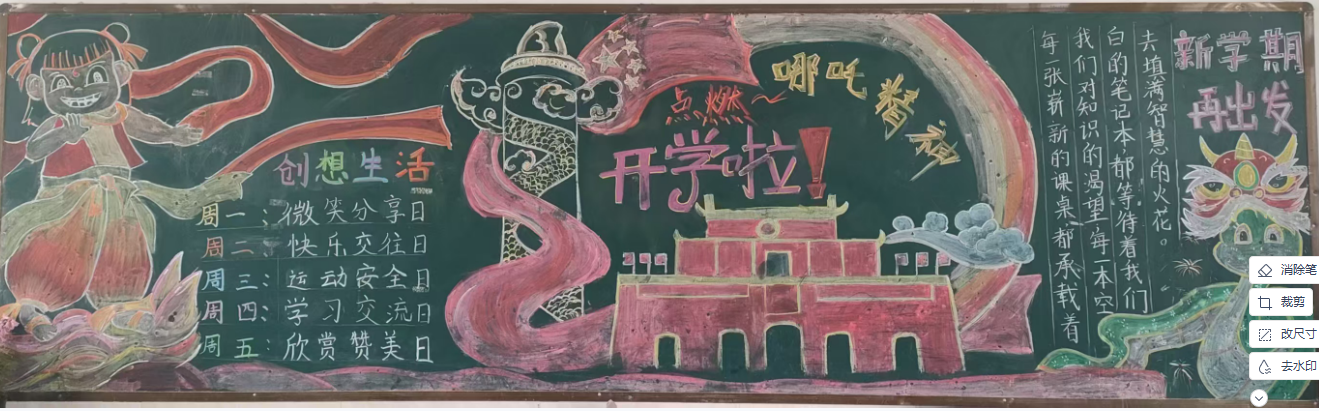 创想生活
周一：微笑分享日
周二：快乐交往日
周三：运动安全日
周四：学习交流日
周五：欣赏赞美日
点燃～
哪吒精神
开学啦！
每一张崭新的课桌，都承载着
我们对知识的渴望，每一本空
白的笔记本，都等待着我们
去填满智慧的火花。
新学期
再出发
消除笔
裁剪
改尺寸
去水印